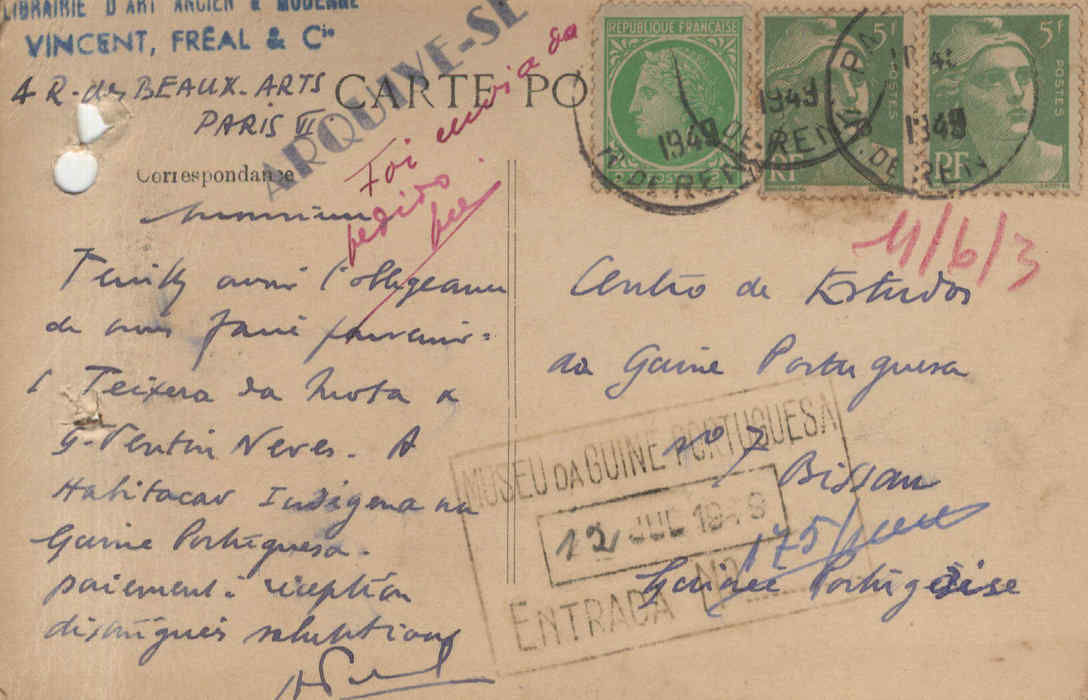 LIBRAIRIE D'ART ANCIEN & MODERNE
VINCENT, FRÉAL & Cie
4 R. des BEAUX-ARTS
PARIS VI
CARTE PO
ARQUIVE-SE
Foi
pedido
Correspondance
Monsieur
Veuillez avoir l'obligeance
de nous faire parvenir:
1 Teixera da Mota &
G. Ventin Neves. A
Habitacao Indigena na
Guine Portuguesa.
paiement à réception
distingués salutations
RÉPUBLIQUE FRANÇAISE
POSTES
RF
5F
POSTES
RF
5F
1949
1949
1949
DE REN
DE REN
DE REN
4/6/3
Centro de Estudos
da Guine Portuguesa
nº 7
Bissau
Guinée Portugaise
MUSEU DA GUINÉ PORTUGUESA
12 JUL 1949
ENTRADA Nº
175/